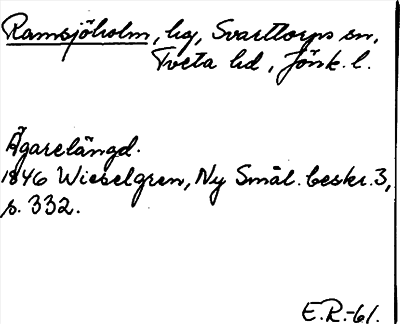 Ramsjöholm, hg, Svarttorps sn,
Tveta hd, Jönk. l.
Ägarelängd.
1846 Wieselgren, Ny Smål. beskr. 3,
s. 332.
E.R.-61.